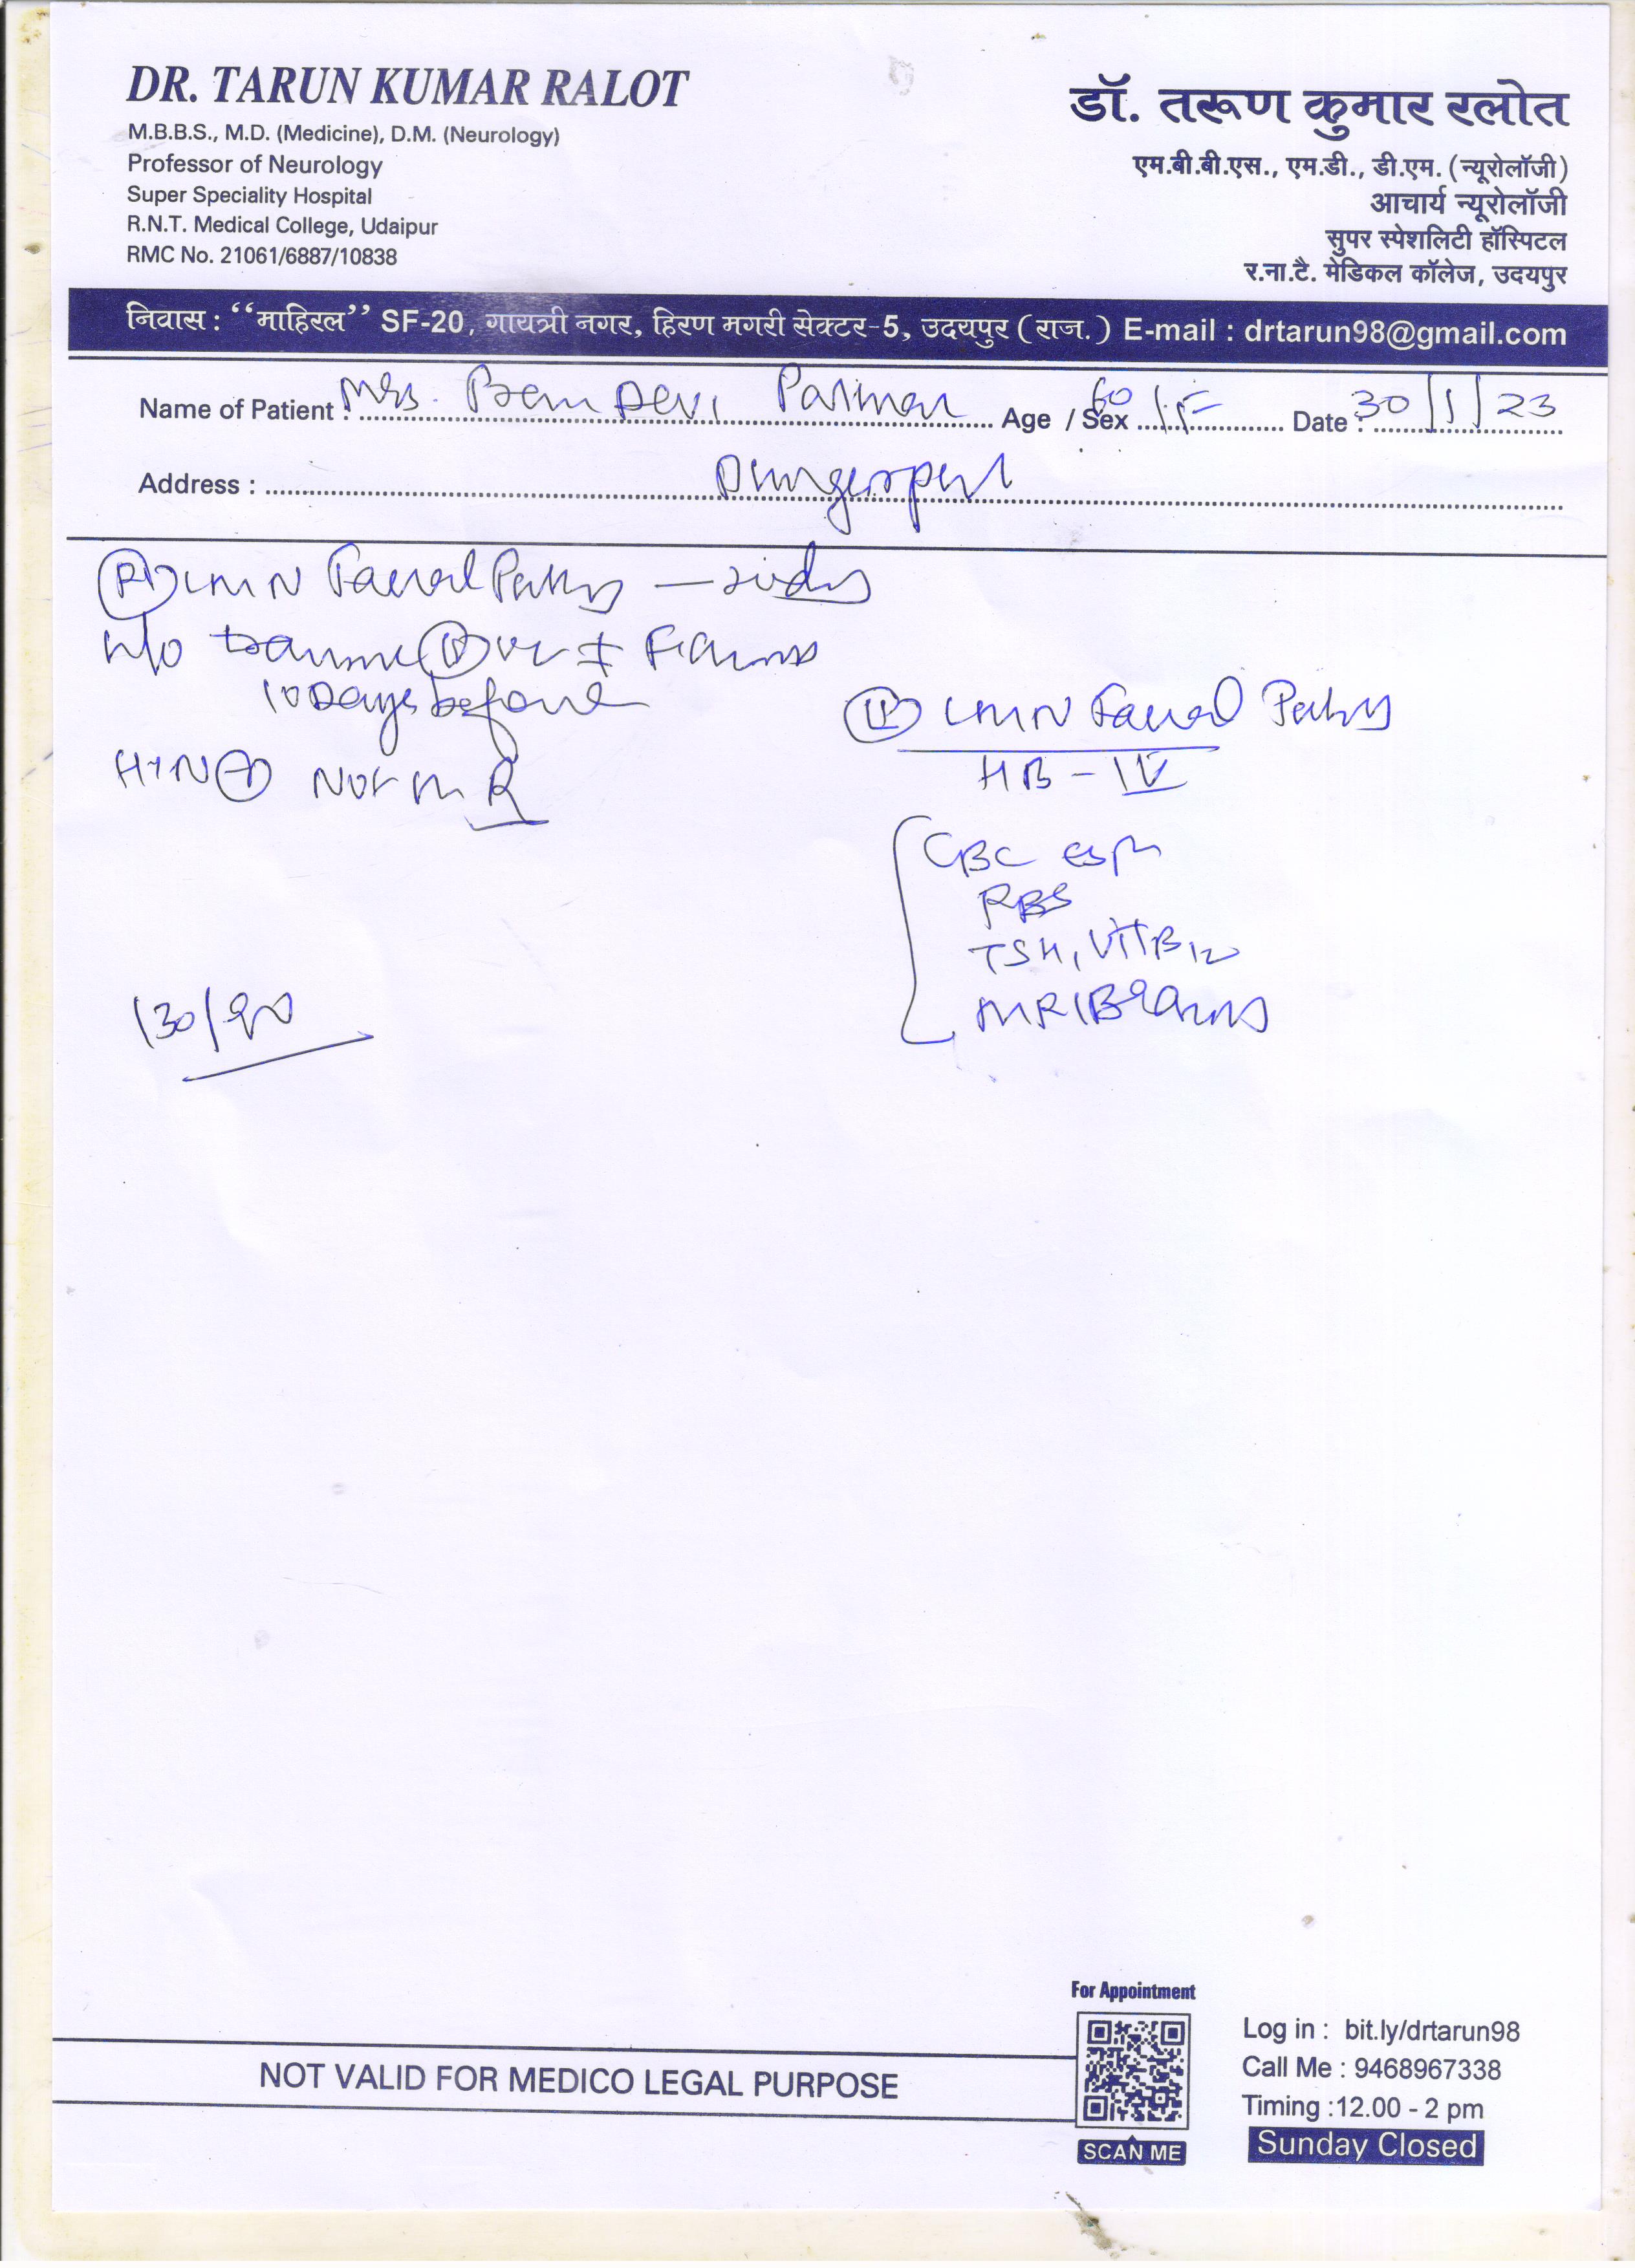 DR. TARUN KUMAR RALOT
M.B.B.S., M.D. (Medicine), D.M. (Neurology)
Professor of Neurology
Super Speciality Hospital
R.N.T. Medical College, Udaipur
RMC No. 21061/6887/10838
डॉ. तरूण कुमार रलोत
एम.बी.बी.एस., एम.डी., डी.एम. (न्यूरोलॉजी)
आचार्य न्यूरोलॉजी
सुपर स्पेशलिटी हॉस्पिटल
र.ना.टै. मेडिकल कॉलेज, उदयपुर
निवास : “माहिरल” SF-20, गायत्री नगर, हिरण मगरी सेक्टर-5, उदयपुर (राज.) E-mail : drtarun98@gmail.com
Name of Patient : Mrs. Prem Devi Parmar Age / Sex 60 / F Date : 30/1/23
Address : Dungerpur
LMN Facial Palsy —
H/o trauma
10 Days before
HTN + Not on R
LMN Facial Palsy
HB - IV
CBC ESR
RBS
TSH, Vit B12
MRI Brain
130/90
NOT VALID FOR MEDICO LEGAL PURPOSE
For Appointment
SCAN ME
Log in : bit.ly/drtarun98
Call Me : 9468967338
Timing :12.00 - 2 pm
Sunday Closed